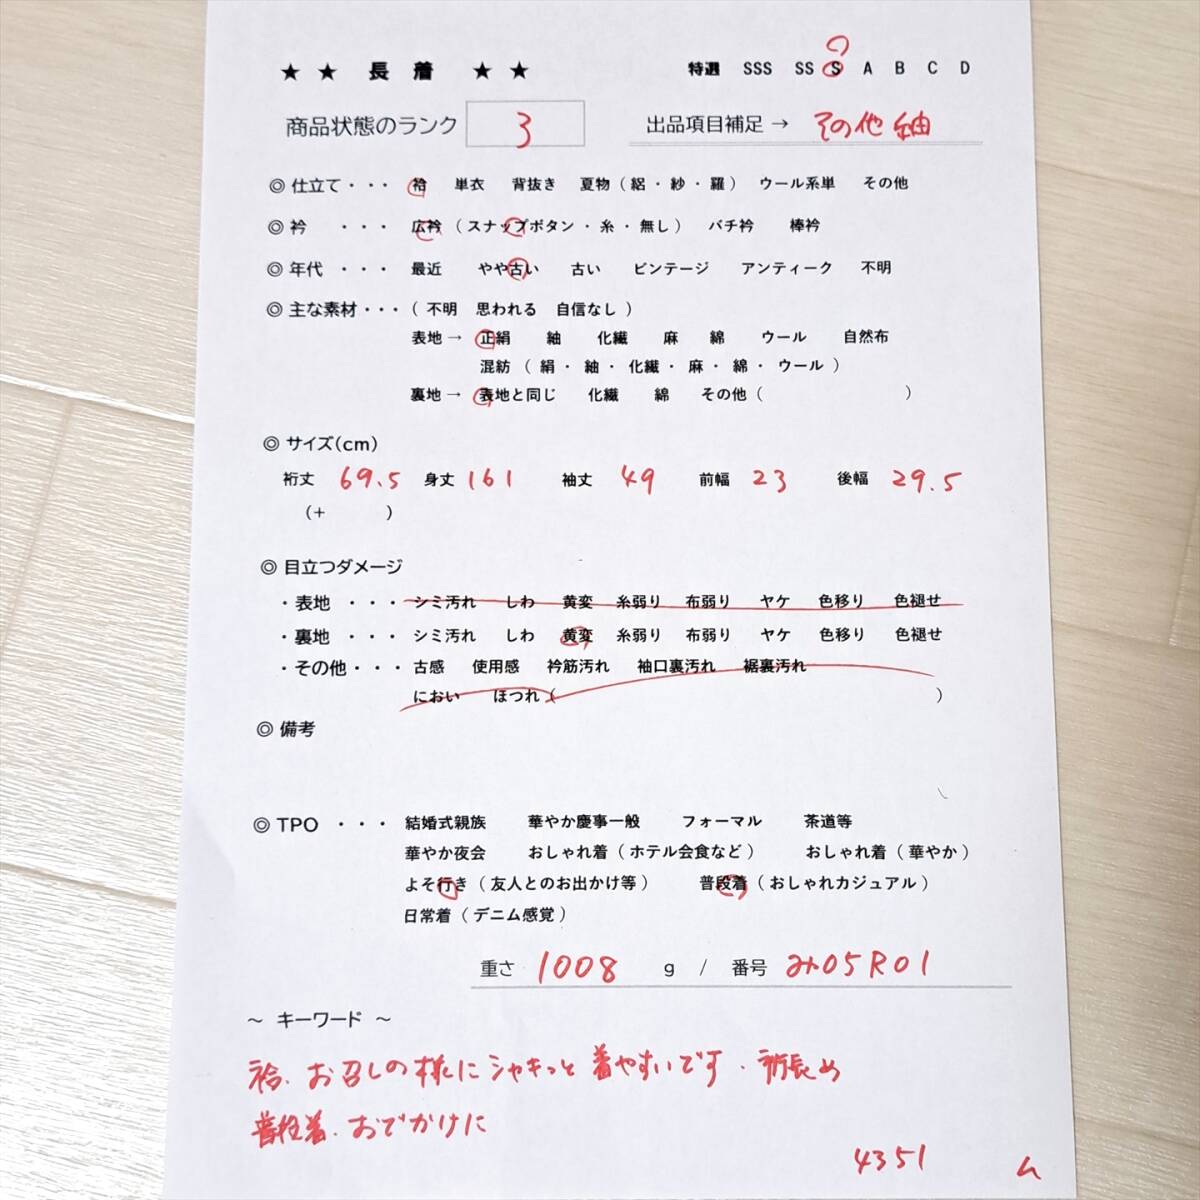 ★ ★ 長 着 ★ ★ 特選 SSS SS S A B C D
商品状態のランク 3 出品項目補足 → その他 紬
◎ 仕立て・・・ 袷 単衣 背抜き 夏物（絽・紗・羅） ウール系単 その他
◎ 衿 ・・・ 広衿（スナップボタン・糸・無し） バチ衿 棒衿
◎ 年代 ・・・ 最近 やや古い 古い ビンテージ アンティーク 不明
◎ 主な素材・・・（ 不明 思われる 自信なし ）
表地 → 正絹 紬 化繊 麻 綿 ウール 自然布
混紡（ 絹・紬・化繊・麻・綿・ウール ）
裏地 → 表地と同じ 化繊 綿 その他（ ）
◎ サイズ(cm)
裄丈 69.5 身丈 161 袖丈 49 前幅 23 後幅 29.5
(+ )
◎ 目立つダメージ
・表地 ・・・ シミ汚れ しわ 黄変 糸弱り 布弱り ヤケ 色移り 色褪せ
・裏地 ・・・ シミ汚れ しわ 黄変 糸弱り 布弱り ヤケ 色移り 色褪せ
・その他・・・ 古感 使用感 衿筋汚れ 袖口裏汚れ 裾裏汚れ
におい ほつれ（ ）
◎ 備考
◎ TPO ・・・ 結婚式親族 華やか慶事一般 フォーマル 茶道等
華やか夜会 おしゃれ着（ホテル会食など） おしゃれ着（華やか）
よそ行き（友人とのお出かけ等） 普段着（おしゃれカジュアル）
日常着（デニム感覚）
重さ 1008 g / 番号 み05R01
～ キーワード ～
袷、お召しの様にシャキっと着やすいです、裄長め
普段着、おでかけに
4351 ム